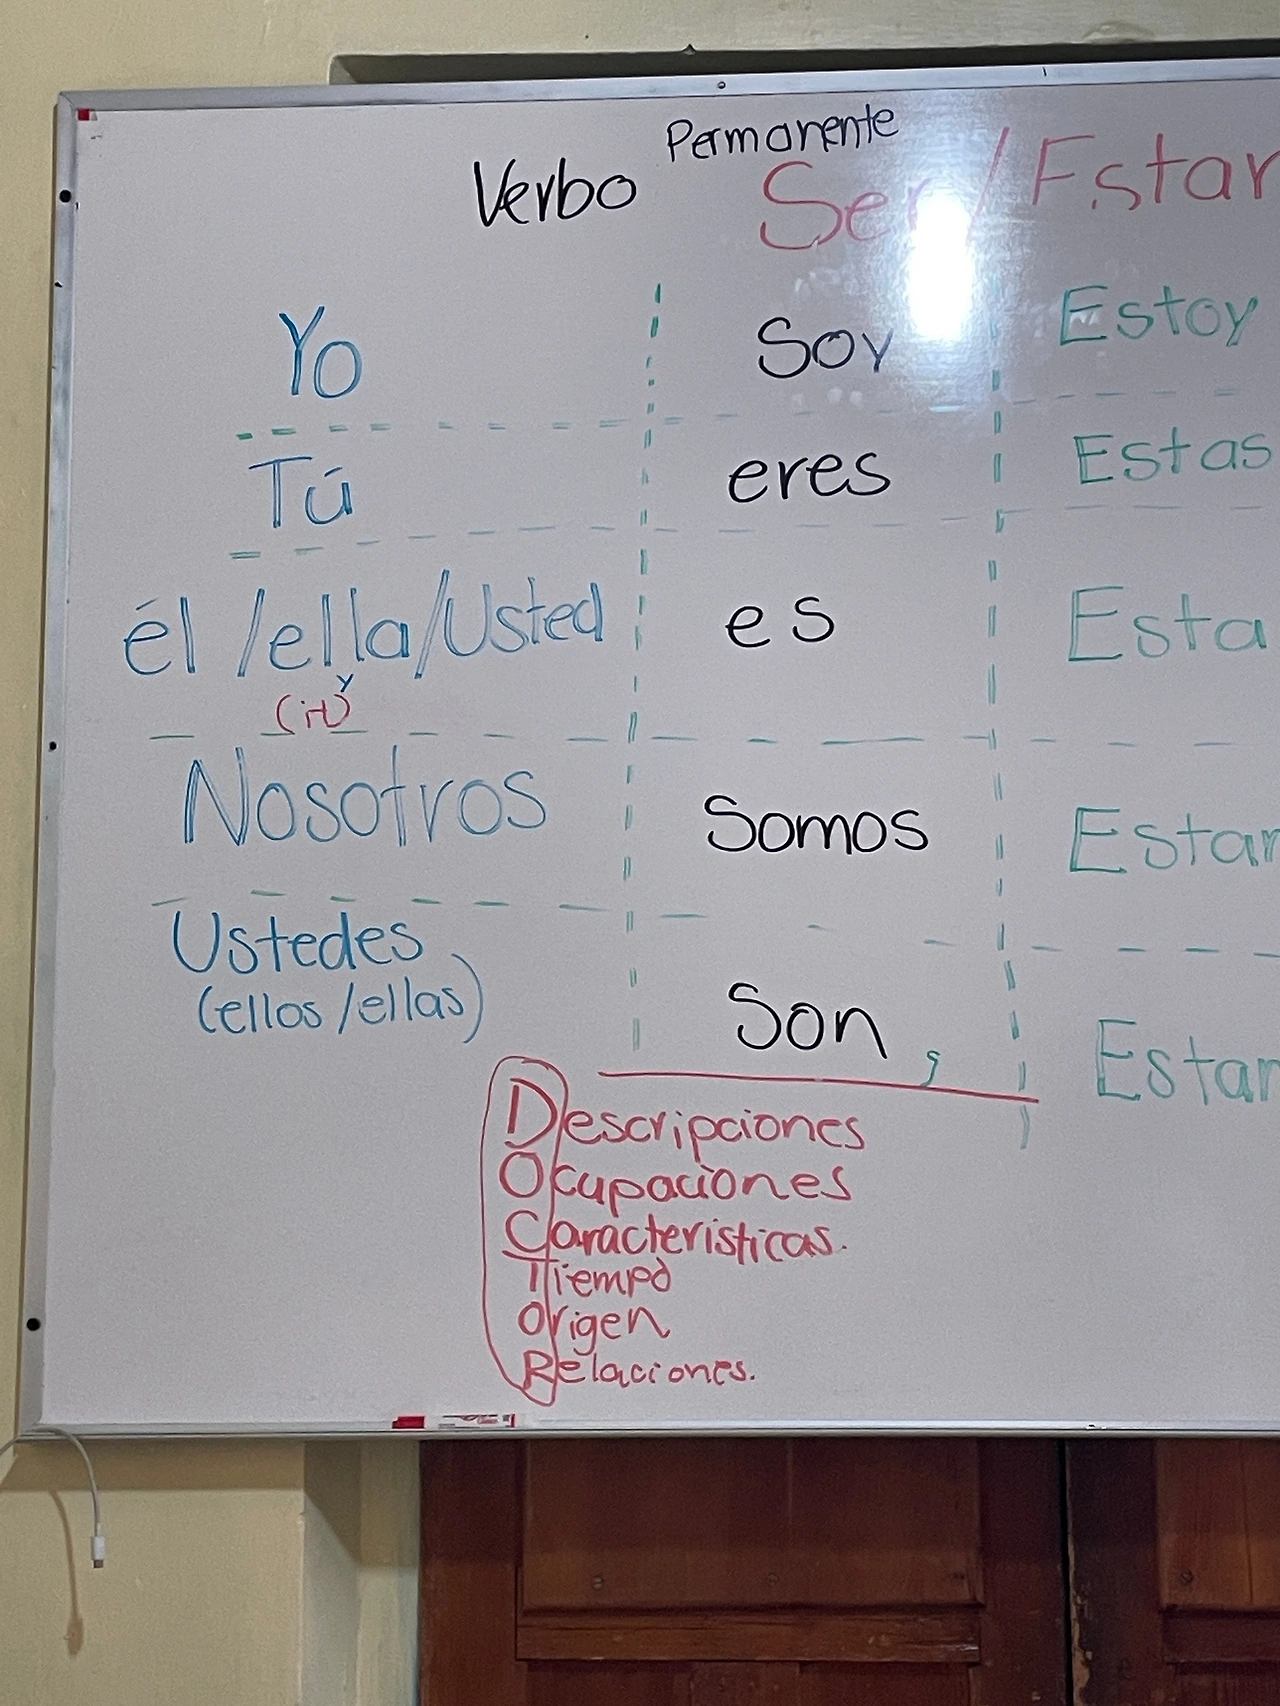 Permanente
Verbo Ser / Estar
Yo Soy Estoy
Tú eres Estas
él /ella/Usted es Esta
(it) y
Nosotros Somos Estam
Ustedes
(ellos /ellas) Son, Estan
Descripciones
Ocupaciones
Caracteristicas.
Tiempo
Origen
Relaciones.